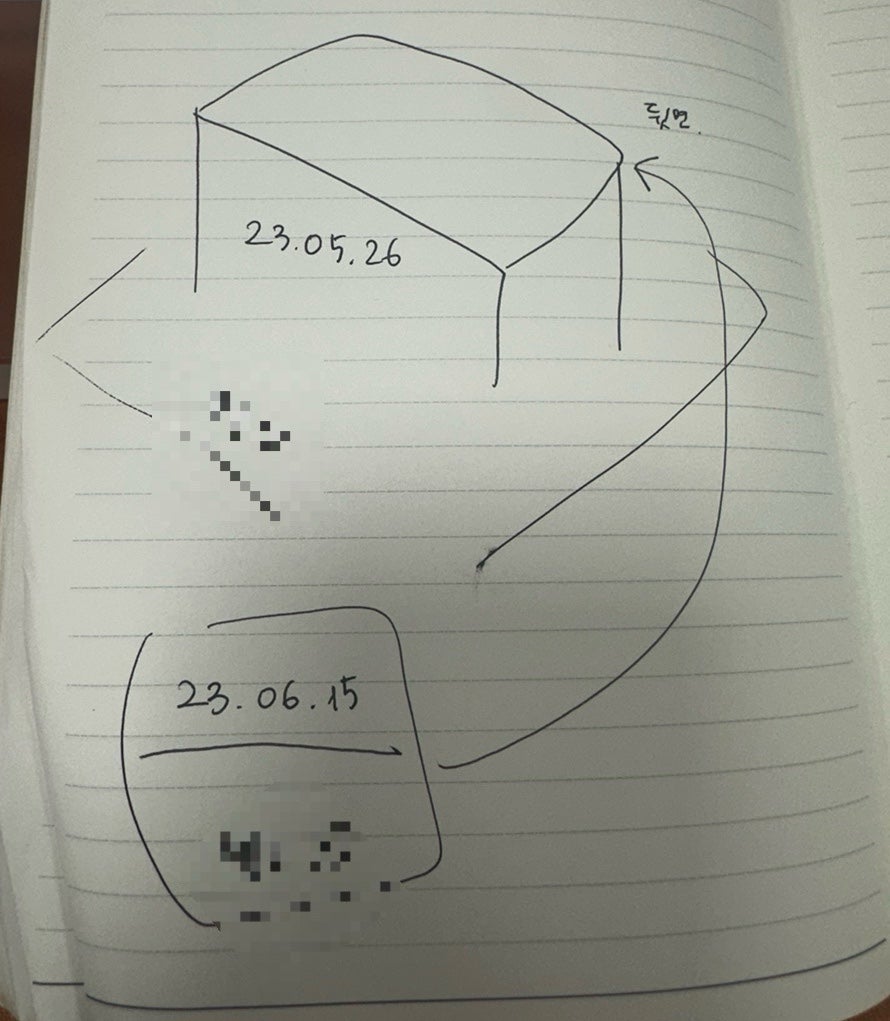 뒷면.
23.05.26
23.06.15